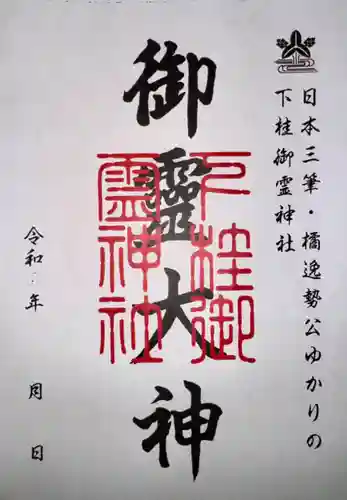 日本三筆・橘逸勢公ゆかりの
下桂御霊神社
御靈大神
下桂御
霊神社
令和 年 月 日